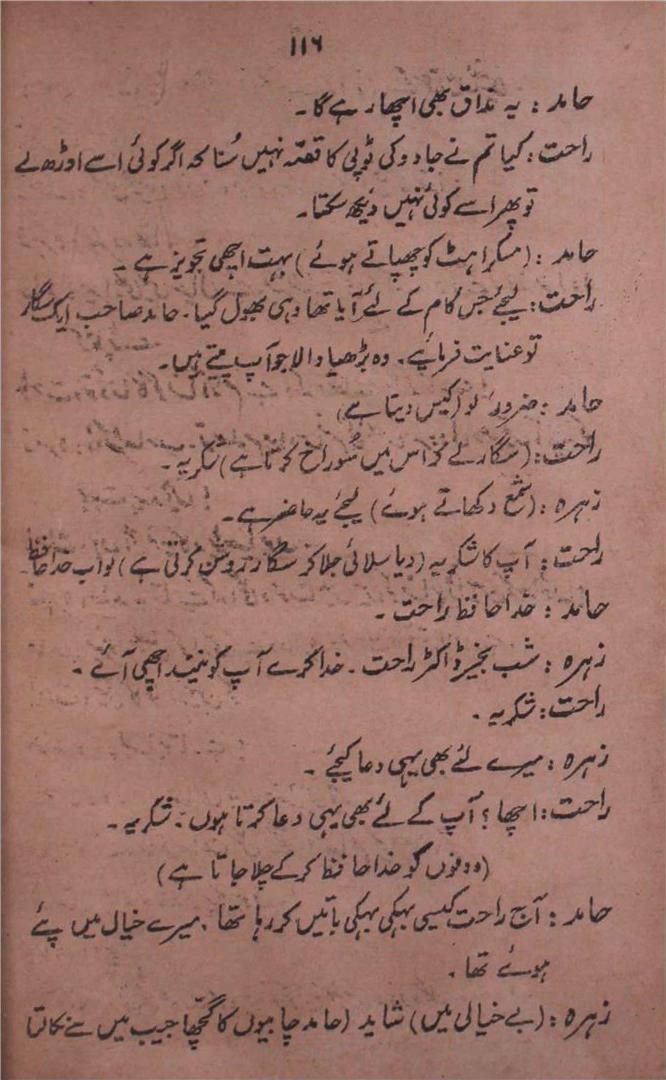 ۱۱۶
حامد : یہ مذاق بھی اچھا رہے گا۔
راحت : کیا تم نے جادو کی ٹوپی کا قصّہ نہیں سُنا کہ اگر کوئی اسے اوڑھ لے
تو پھر اسے کوئی نہیں دیکھ سکتا۔
حامد : (مسکراہٹ کو چھپاتے ہوئے) بہت اچھی تجویز ہے۔
راحت : لیجئے جس کام کے لئے آیا تھا وہی بھول گیا۔ حامد صاحب ایک سگار
تو عنایت فرمایئے۔ وہ بڑھیا والا جو آپ پیتے ہیں۔
حامد : ضرور، لو (کیس دیتا ہے)
راحت : (سگار لے کر اس میں سُوراخ کرتا ہے) شکریہ۔
زہرہ : (شمع دکھاتے ہوئے) لیجئے یہ حاضر ہے۔
راحت : آپ کا شکریہ (دیا سلائی جلا کر سگار روشن کرتی ہے) تو اب خدا حافظ
حامد : خدا حافظ راحت۔
زہرہ : شب بخیر ڈاکٹر راحت۔ خدا کرے آپ کو نیند اچھی آئے۔
راحت : شکریہ۔
زہرہ : میرے لئے بھی یہی دعا کیجئے۔
راحت : اچھا؟ آپ کے لئے بھی یہی دعا کرتا ہوں۔ شکریہ۔
(دونوں کو خدا حافظ کر کے چلا جاتا ہے)
حامد : آج راحت کیسی بہکی بہکی باتیں کر رہا تھا، میرے خیال میں پئے
ہوئے تھا۔
زہرہ : (بے خیالی میں) شاید (حامد چابیوں کا گچھا جیب میں سے نکالتا